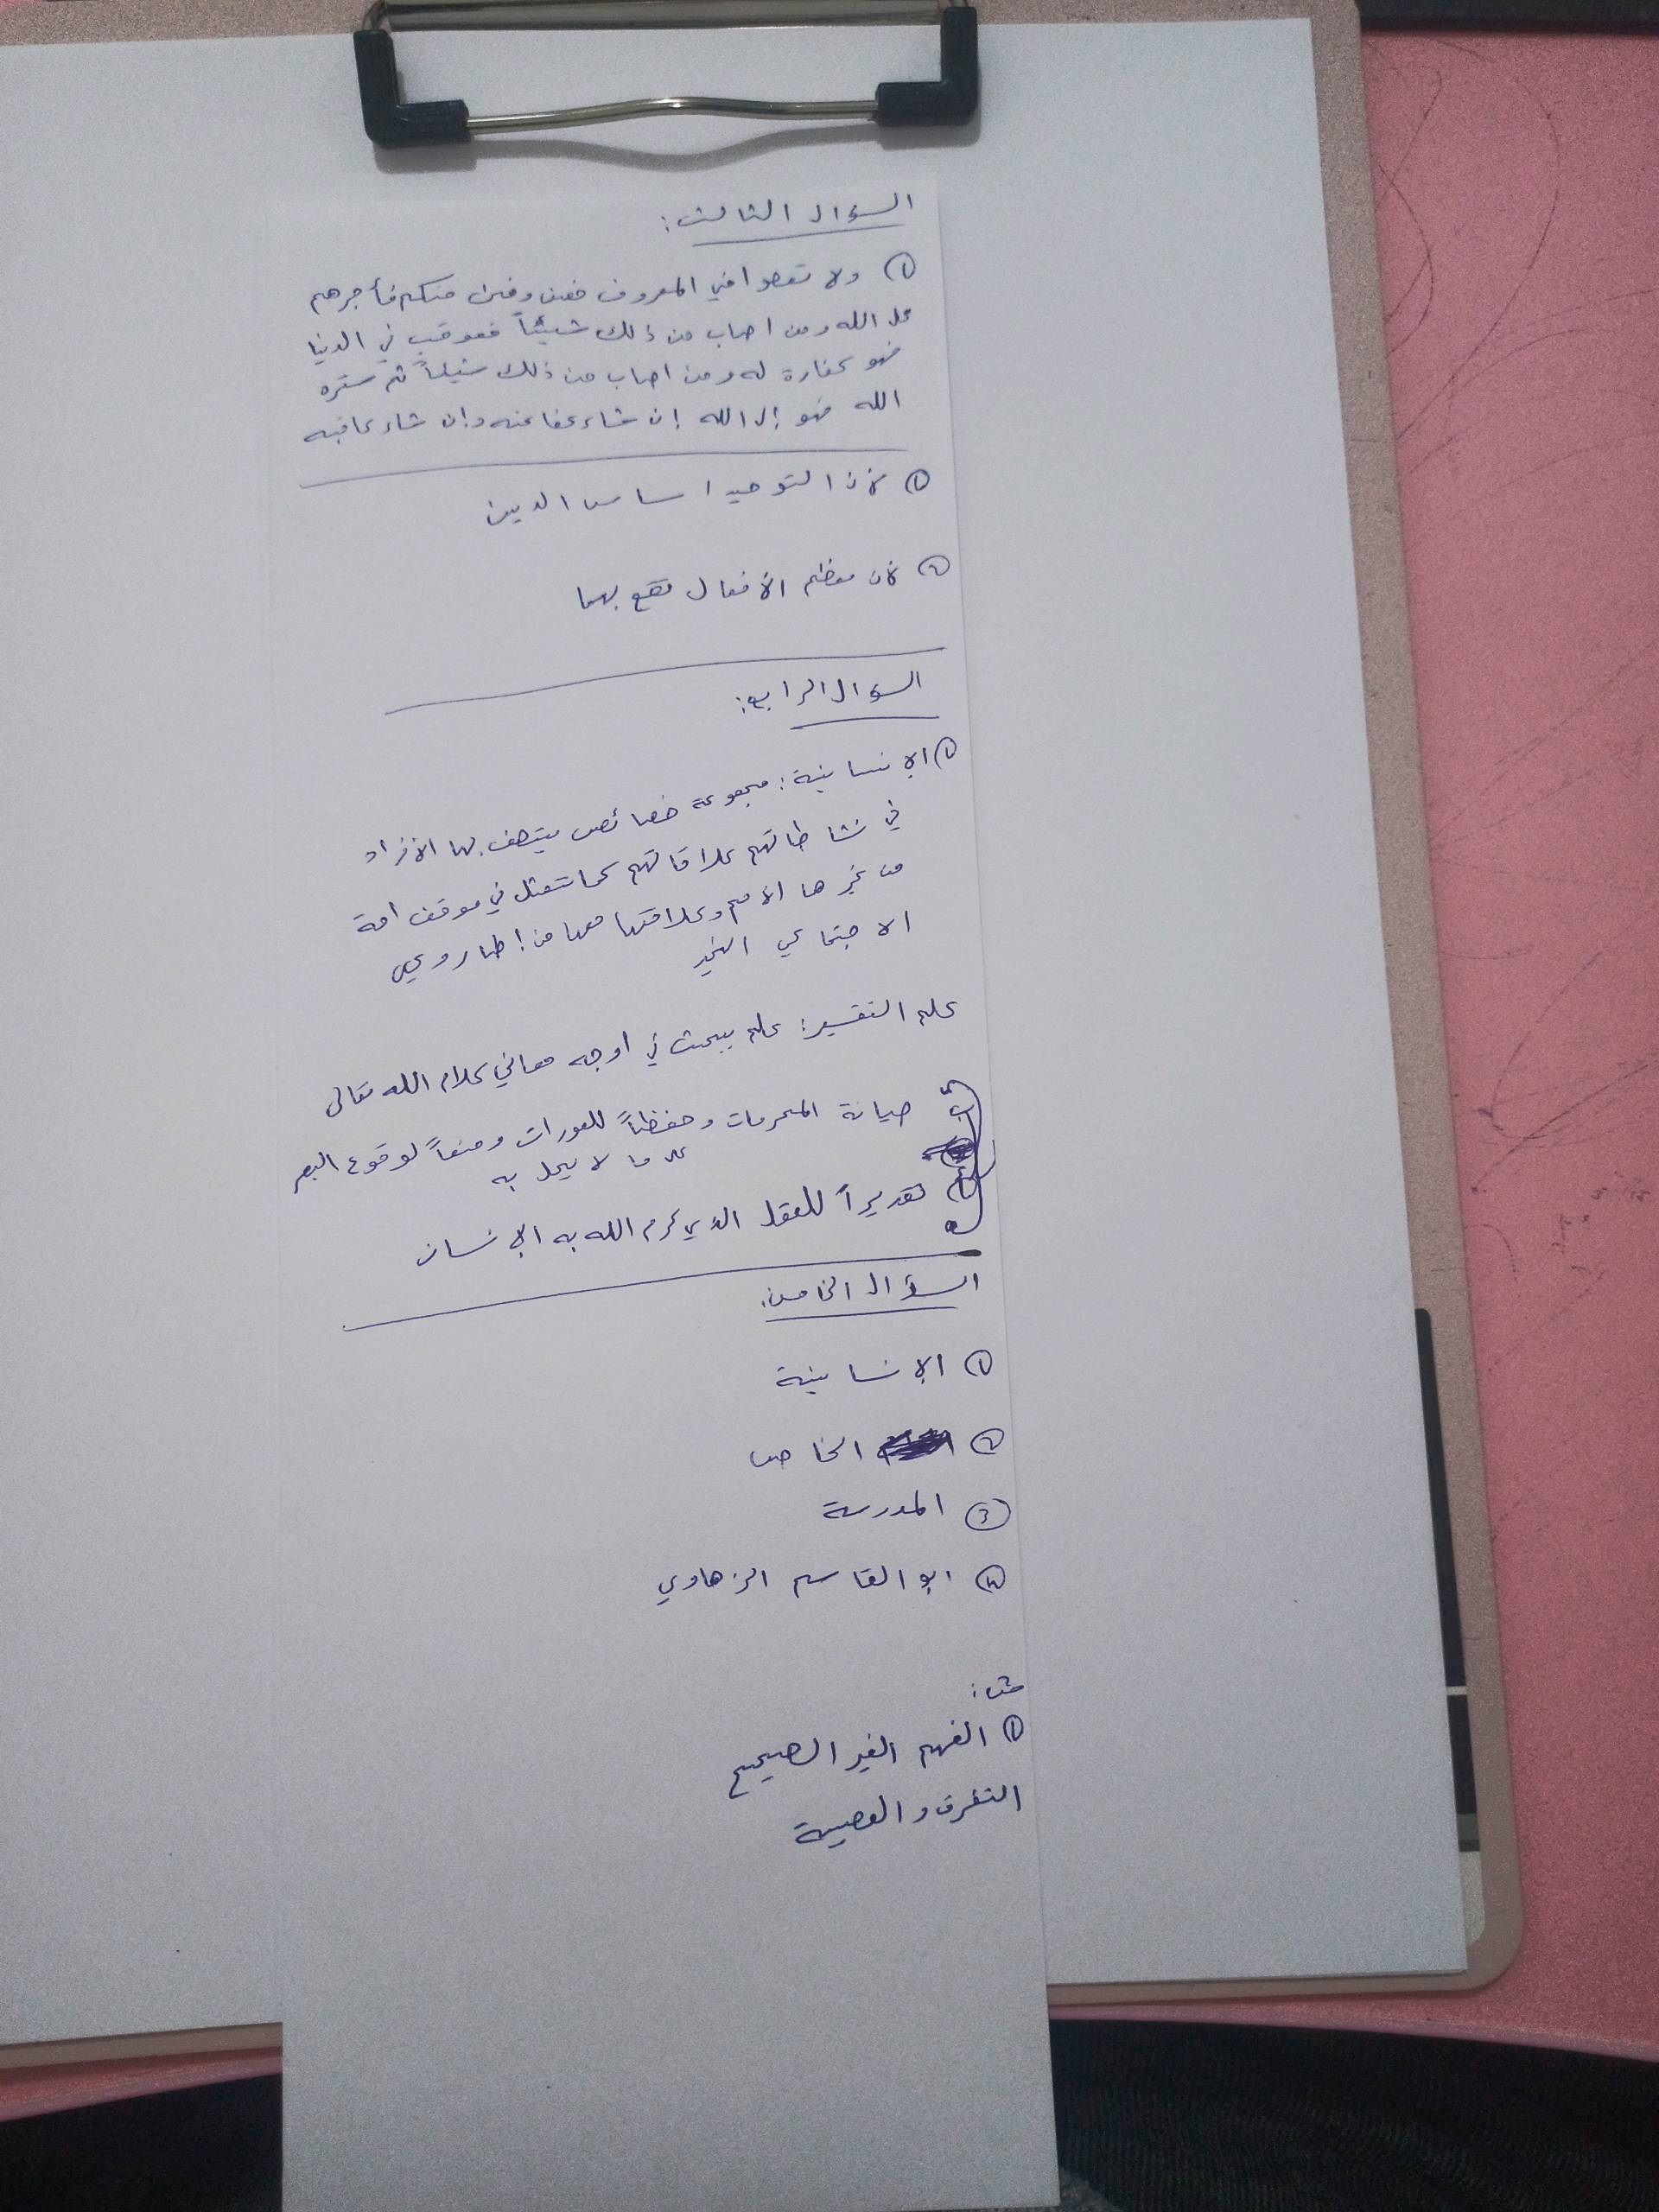 السؤال الثالث:
① ولا تعصوا في المعروف فمن وفى منكم فأجرهم
على الله ومن اصاب من ذلك شيئاً فعوقب في الدنيا
فهو كفارة له ومن اصاب من ذلك شيئاً ثم ستره
الله فهو إلى الله إن شاء عفا عنه وإن شاء عاقبه
① لأن التوحيد اساس الدين
② لأن معظم الأفعال تقع بهما
السؤال الرابع:
① الإنسانية: مجموعة خصائص يتصف بها الأفراد
في نشاطاتهم علاقاتهم كما تتمثل في موقف امة
من غيرها الأمم وعلاقتها معها من إطار وعي
الاجتماعي الخير
علم التفسير: علم يبحث في اوجه معاني كلام الله تعالى
ب صيانة المحرمات وحفظاً للعورات ومنعاً لوقوع البصر
على ما لا يحل به
أ تقديراً للعقل الذي كرم الله به الإنسان
السؤال الخامس:
① الإنسانية
② الخاص
③ المدرسة
④ ابو القاسم الزهاوي
① الفهم الغير الصحيح
التفرق و العصبية